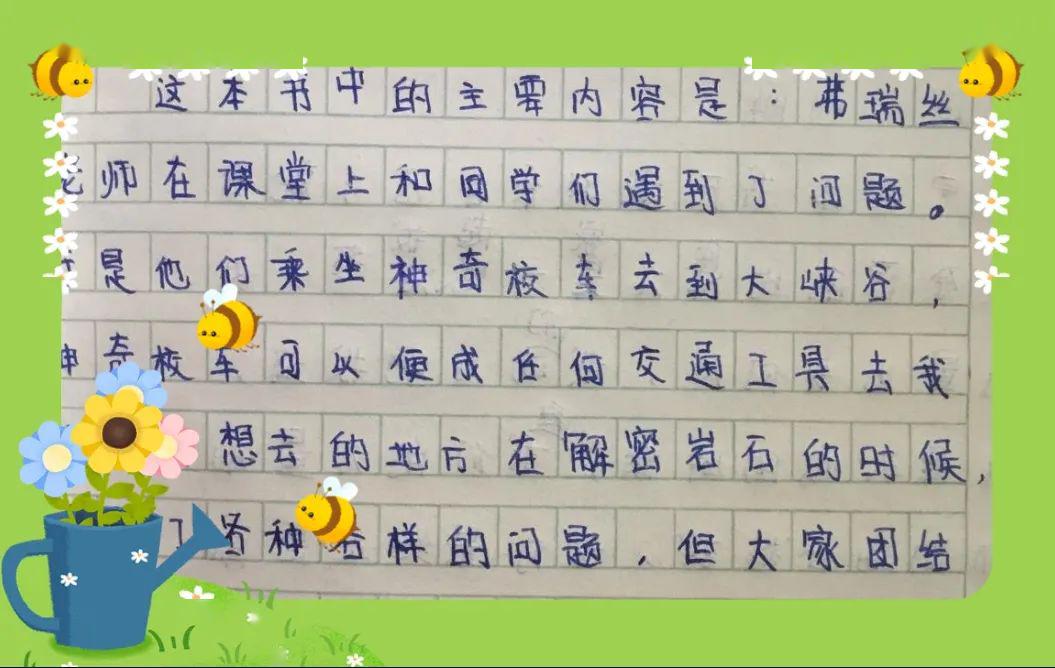 这本书中的主要内容是:弗瑞丝
师在课堂上和同学们遇到了问题。
是他们乘坐神奇校车去到大峡谷,
奇校车可以便成任何交通工具去我
想去的地方在解密岩石的时候,
各种各样的问题,但大家团结